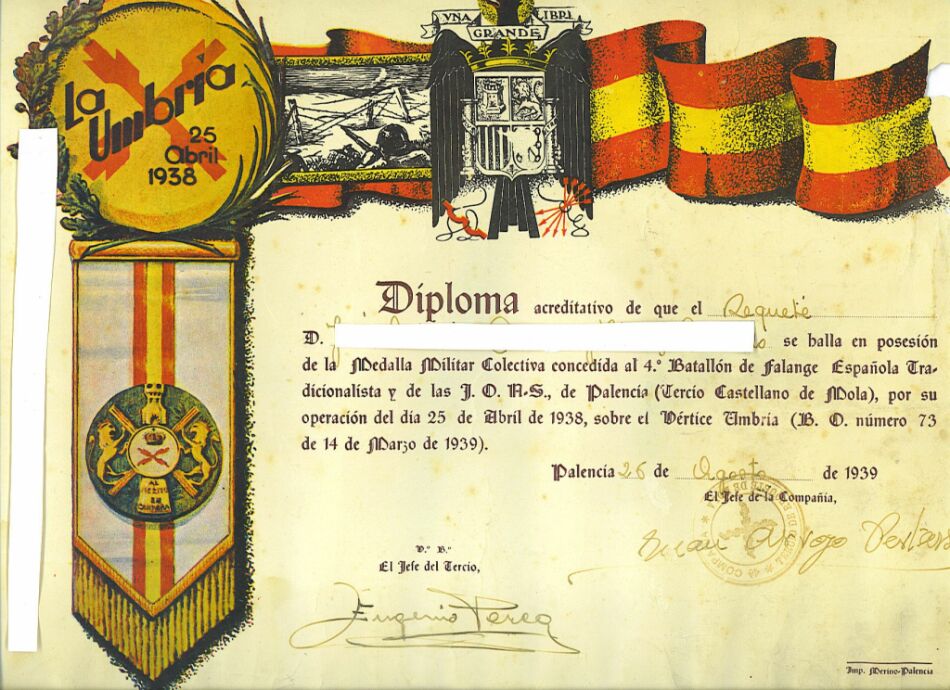 VNA
GRANDE
LIBRE
La
Umbría
25
Abril
1938
AL
MERITO
EN
CAMPAÑA
Diploma acreditativo de que el Requeté
D. se halla en posesión
de la Medalla Militar Colectiva concedida al 4.º Batallón de Falange Española Tra-
dicionalista y de las J. O. N-S., de Palencia (Tercio Castellano de Mola), por su
operación del día 25 de Abril de 1938, sobre el Vértice Umbría (B. O. número 73
de 14 de Marzo de 1939).
Palencia 26 de Agosto de 1939
El Jefe de la Compañía,
Arroyo
V.º B.º
El Jefe del Tercio,
Eugenio Perea
Imp. Merino-Palencia